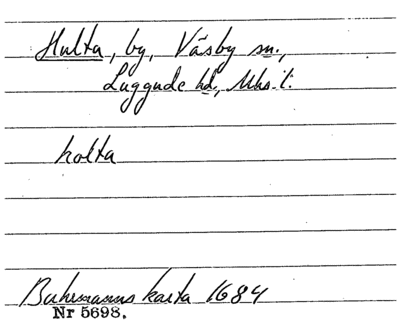 Hulta, by, Väsby sn.,
Luggude hd, Mhs. l.
holta
Buhrmanns karta 1684
Nr 5698.